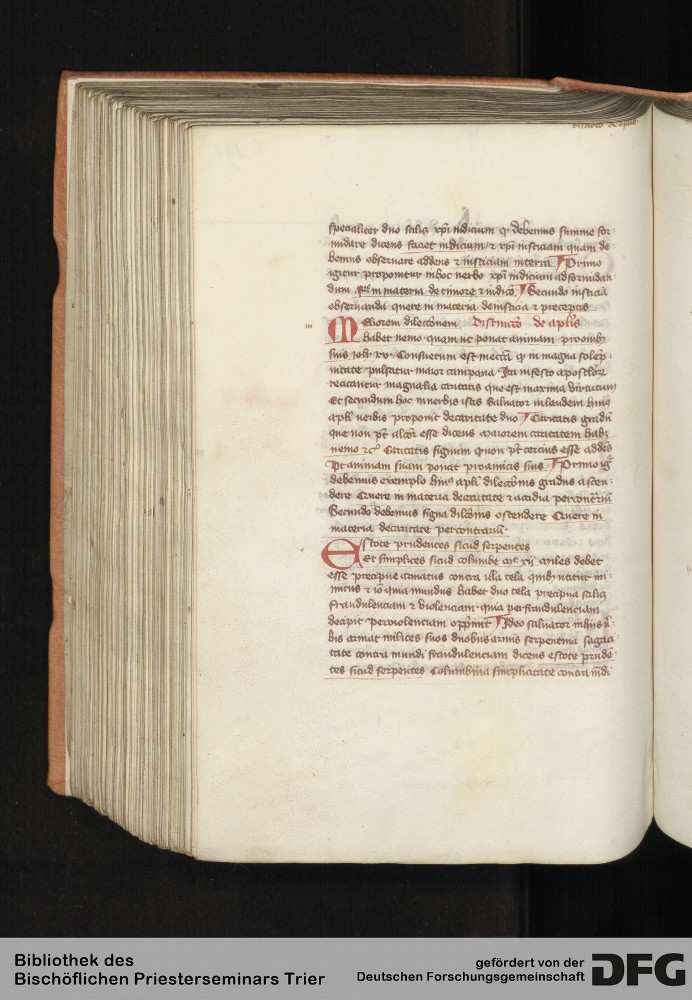 specialiter duo scilicz xpi iudicium qd debemus summe for
midare dicens faciet iudicium / et xpi iusticiam quam de
bemus obseruare addens et iusticiam in terra Primo
igitur proponitur in hoc verbo xpi iudicium ad formidan
dum in materia de timore et iudicio Secundo iusticia
obseruanda quere in materia de iusticia et preceptis
Maiorem dileccionem Distinccio de aplis
habet nemo quam ut ponat animam pro
suis Joh xv Consuetum est in magna
nitate pulsatur maior campana Ita in festo
recitantur magnalia caritatis que est maxima virtutum
Et secundum hoc in verbis istis Saluator in laudem huius
apli verbis proponit de caritate duo Caritatis gradum
que non pt esse dicens maiorem caritatem habet
nemo etc Caritatis signum quo non pt cercius esse addens
ut animam suam ponat pro amicis suis Primo igr
debemus exemplo huius apli dileccionis gradus ascen
dere Quere in materia de caritate et accidia per contrarium
Secundo debemus signa ostendere Quere in
materia de caritate per contrarium
Estote prudentes sicud serpentes
Et simplices sicud columbe miles debet
esse precipue armatus contra illa tela quibus utitur ini
micus et io quia mundus habet duo tela precipua scilicz
fraudulenciam et violenciam quia per fraudulenciam
decipit per violenciam opprimit Ideo saluator in hiis
bis armat milites suos duobus armis serpentina sagaci
tate contra mundi fraudulenciam dicens estote pruden
tes sicud serpentes Columbina simplicitate contra mundi
Bibliothek des
Bischöflichen Priesterseminars Trier
gefördert von der
Deutschen Forschungsgemeinschaft
DFG